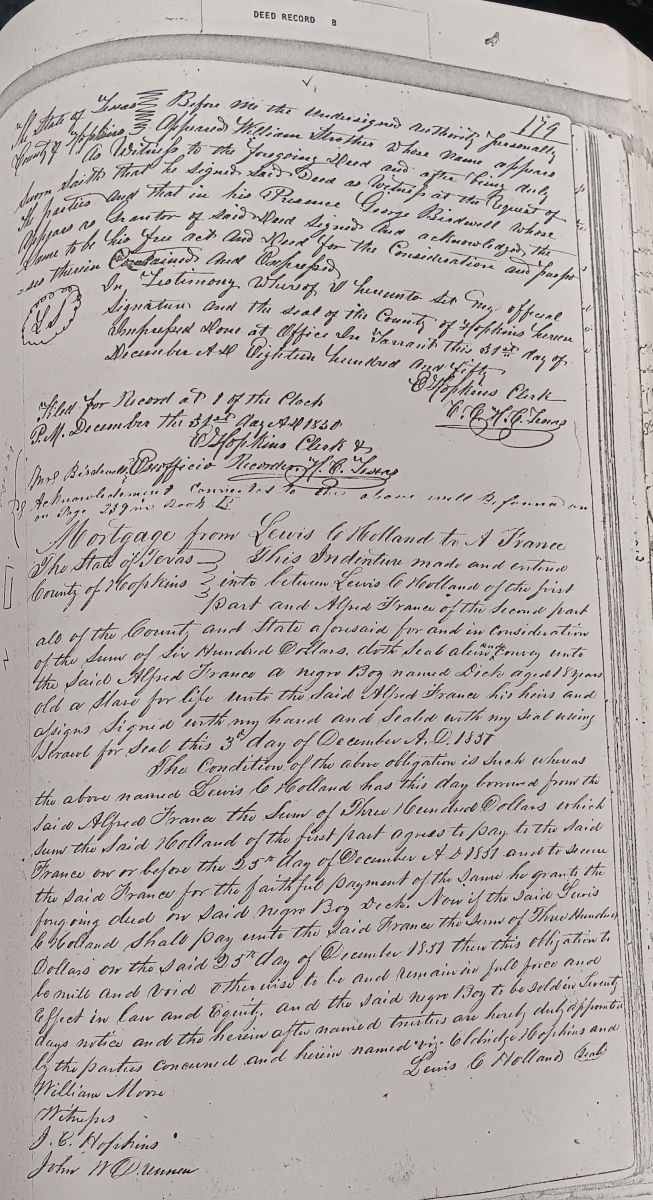 DEED RECORD B
179
The State of Texas Before me the undersigned authority personally
County of Hopkins appeared William Strother whose name appears
as Witness to the foregoing Deed and after being duly
sworn saith that he signed said Deed as Witness at the request of
the parties and that in his Presence George Birdwell whose
appears as Grantor of said Deed signed and acknowledged the
same to be his free act and Deed for the Consideration and purpo
=ses therein Contained and Expressed
In Testimony Whereof I hereunto Set my official
L S
Signature and the Seal of the County of Hopkins hereon
Impressed Done at Office In Tarrant this 31st day of
December A D Eighteen hundred and Fifty
E Hopkins Clerk
C. C. H. C. Texas
Filed for Record at 1 of the Clock
P.M. December the 31st day AD 1850
E Hopkins Clerk &
Exofficio Recorder H. C. Texas
Mrs Birdwells
Acknowledgement connected to the above will be found on
on Page 239 in Book
Mortgage from Lewis C Holland to A France
The State of Texas This Indenture made and entered
County of Hopkins into between Lewis C Holland of the first
part and Alfred France of the Second part
all of the County and State aforesaid for and in Consideration
of the Sum of Six Hundred Dollars. doth Seal alein and Convey unto
the Said Alfred France a negro Boy named Dick aged 18 years
old a Slave for life unto the Said Alfred France his heirs and
assigns Signed with my hand and Sealed with my Seal using
Scrawl for Seal this 3d day of December A.D. 1851
The Condition of the above obligation is Such whereas
the above named Lewis C Holland has this day borrowed from the
Said Alfred France the Sum of Three Hundred Dollars which
Sum the Said Holland of the first part agrees to pay to the Said
France on or before the 25th day of December A D 1851 and to secure
the Said France for the faithful payment of the Same he grants the
forgoing deed on Said negro Boy Dick. Now if the Said Lewis
C Holland Shall pay unto the Said France the Sum of Three Hundred
Dollars on the Said 25th day of December 1851 then this obligation to
be null and void otherwise to be and remain in full force and
Effect in law and Equity. and the Said negro Boy to be sold in Twenty
days notice and the herein after named trusties are hereby duly appointed
by the parties concerned and herein named viz. Eldridge Hopkins and
Lewis C Holland Seal
William Moore
Witness
J. E. Hopkins
John W Drennen